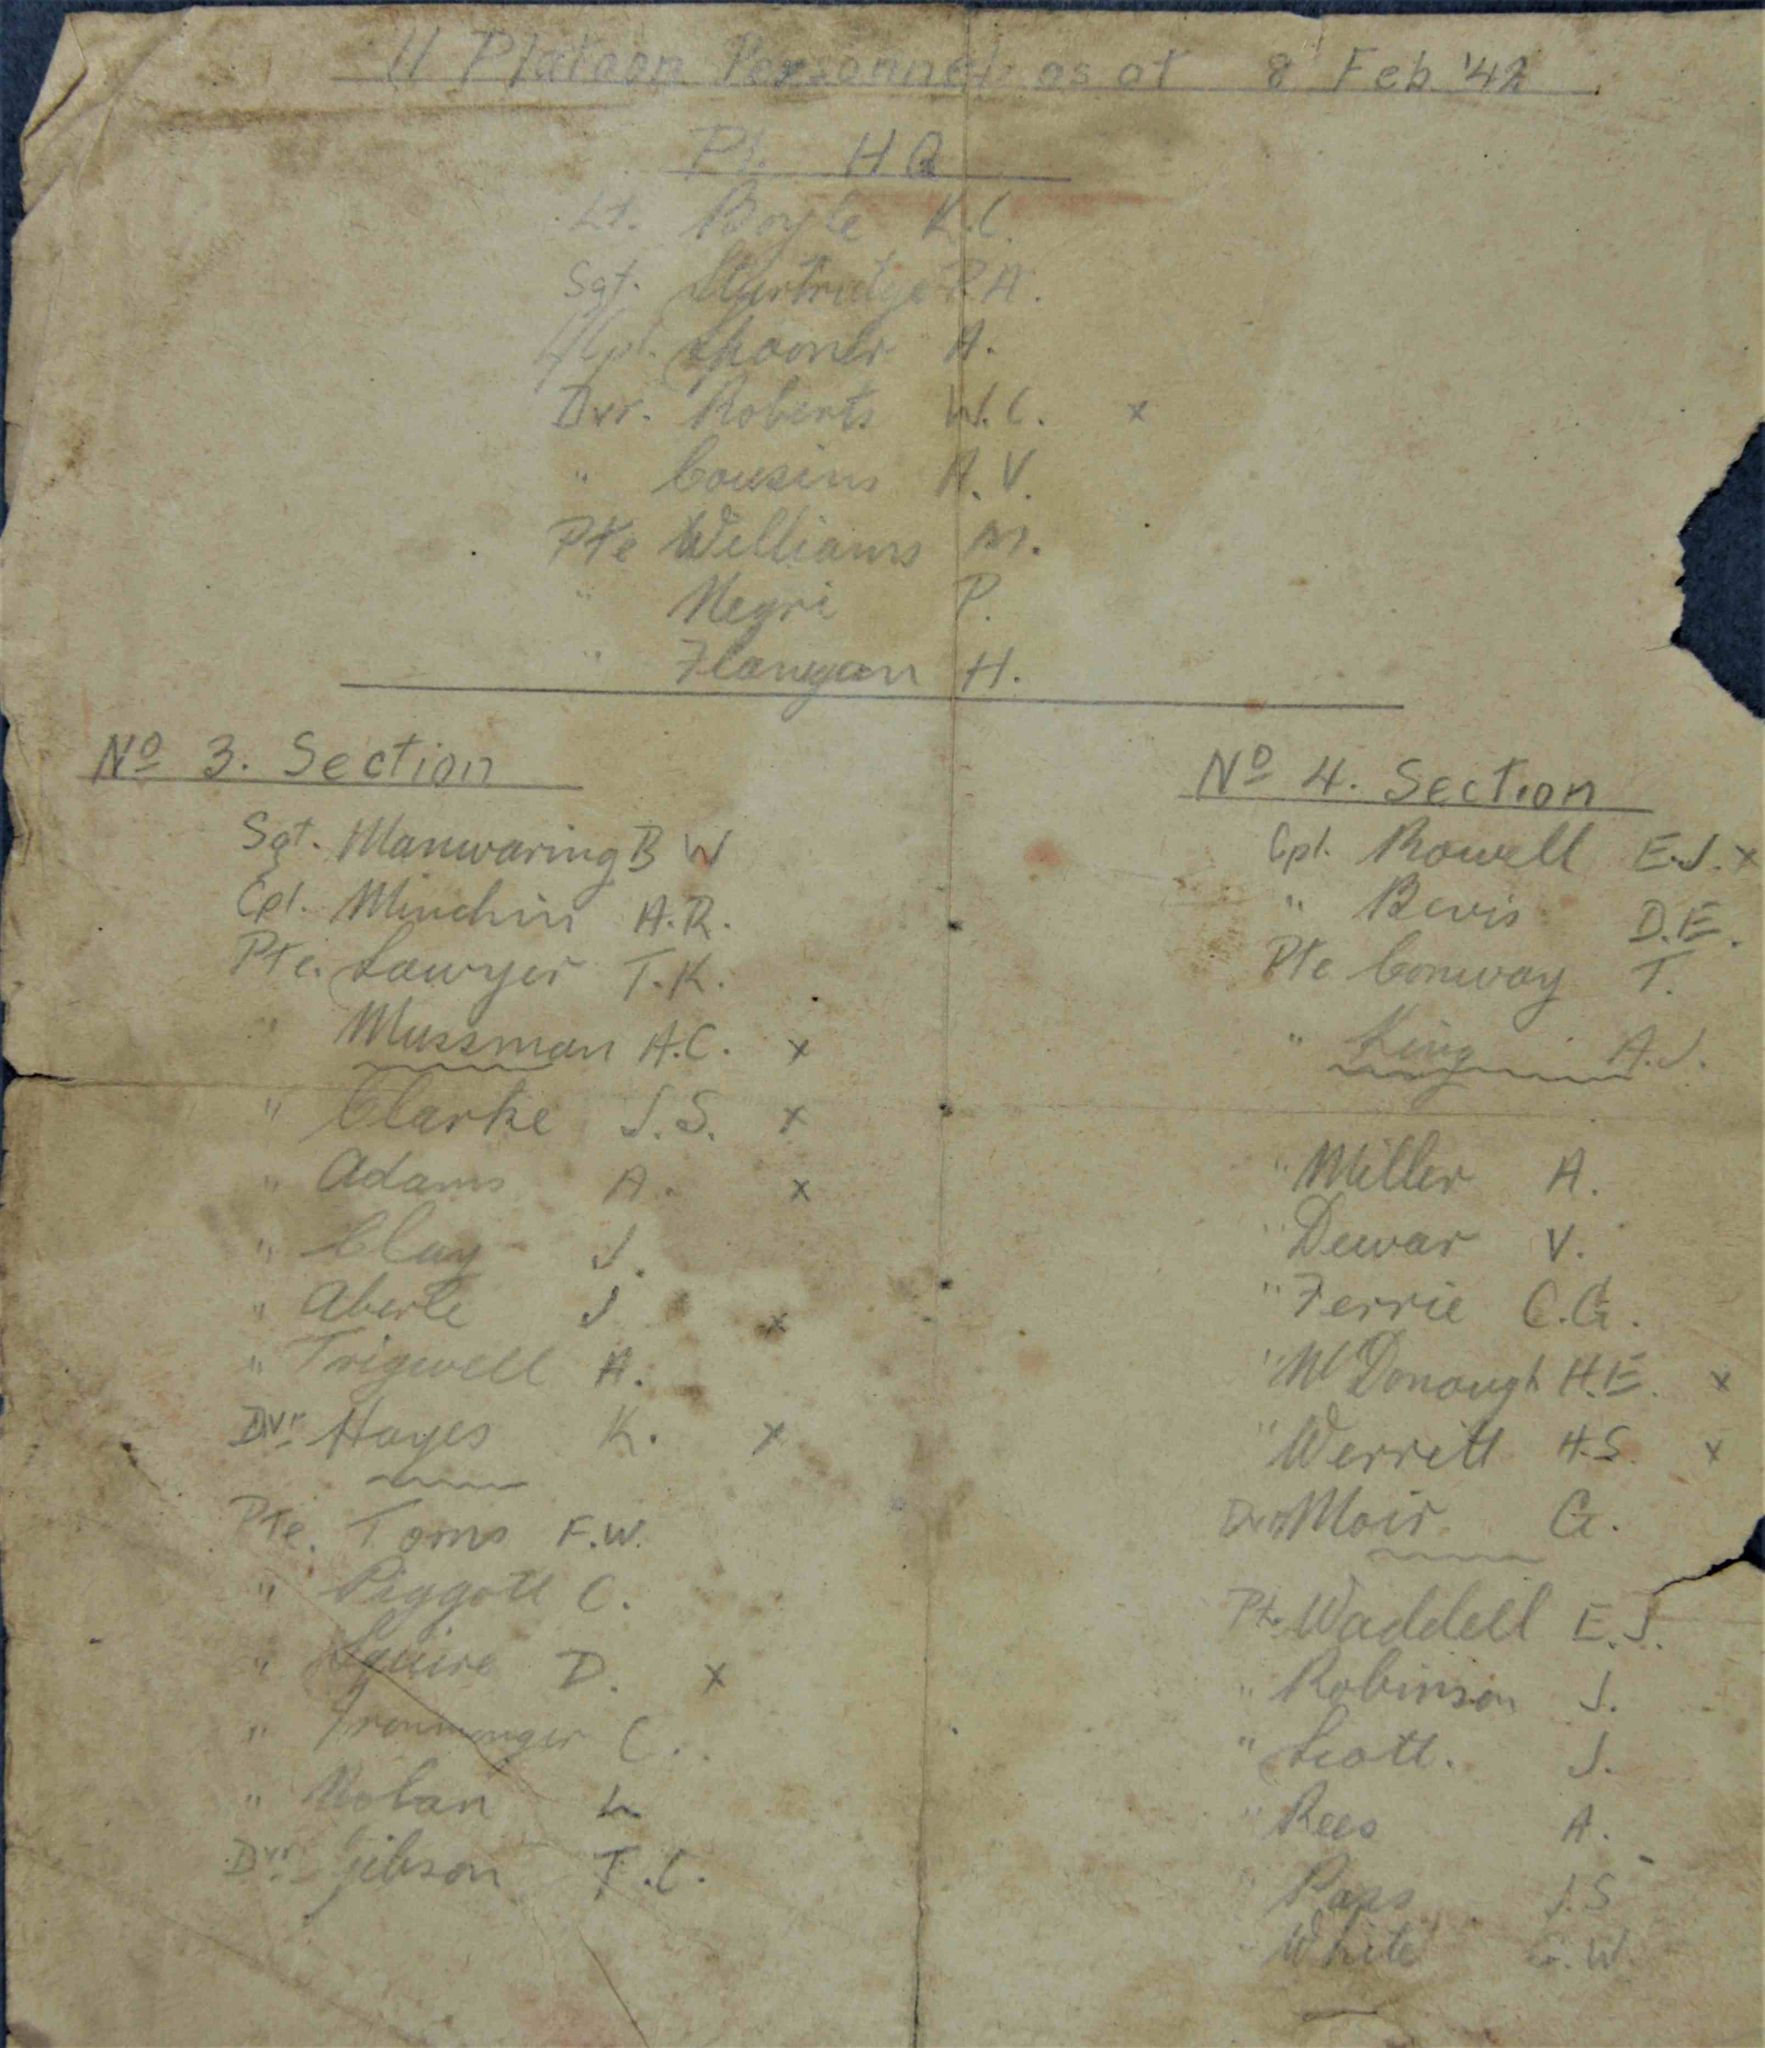 11 Platoon Personnel as at 8 Feb '42
Pl. H Q
Lt. Boyle K.C.
Sgt. P.A.
L/Cpl. Spooner A.
Dvr. Roberts W.C. x
" Cousins A.V.
Pte Williams M.
" Negri P.
" Flanagan H.
No 3. Section
Sgt. Manwaring B W
Cpl. Minchin A.R.
Pte. Sawyer T.K.
" Mussman A.C. x
" Clarke J.S. x
" Adams A. x
" Clay J.
" Aberle J x
" Trigwell A.
Dvr Hayes K. x
Pte. Toms F.W.
" Piggott C.
" Squire D. x
" Ironmonger C.
" Nolan L
Dvr. Gibson T.C.
No 4. Section
Cpl. Rowell E.J. x
" Bevis D.E.
Pte Conway T.
" King A.J.
" Miller A.
" Dewar V.
" Ferrie C.G.
" McDonough H.E. x
" Werrett H.S. x
Dvr Moir G.
Pte Waddell E.J.
" Robinson J.
" Scott. J.
" Rees A.
" Paps J.S
" White G.W.